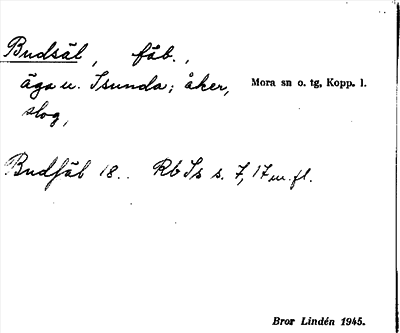 Budsäl, fäb.,
äga u. Isunda; åker,
Mora sn o. tg, Kopp. l.
slog,
Budsäl 18.. Rb Is s. 7, 17 m. fl.
Bror Lindén 1945.